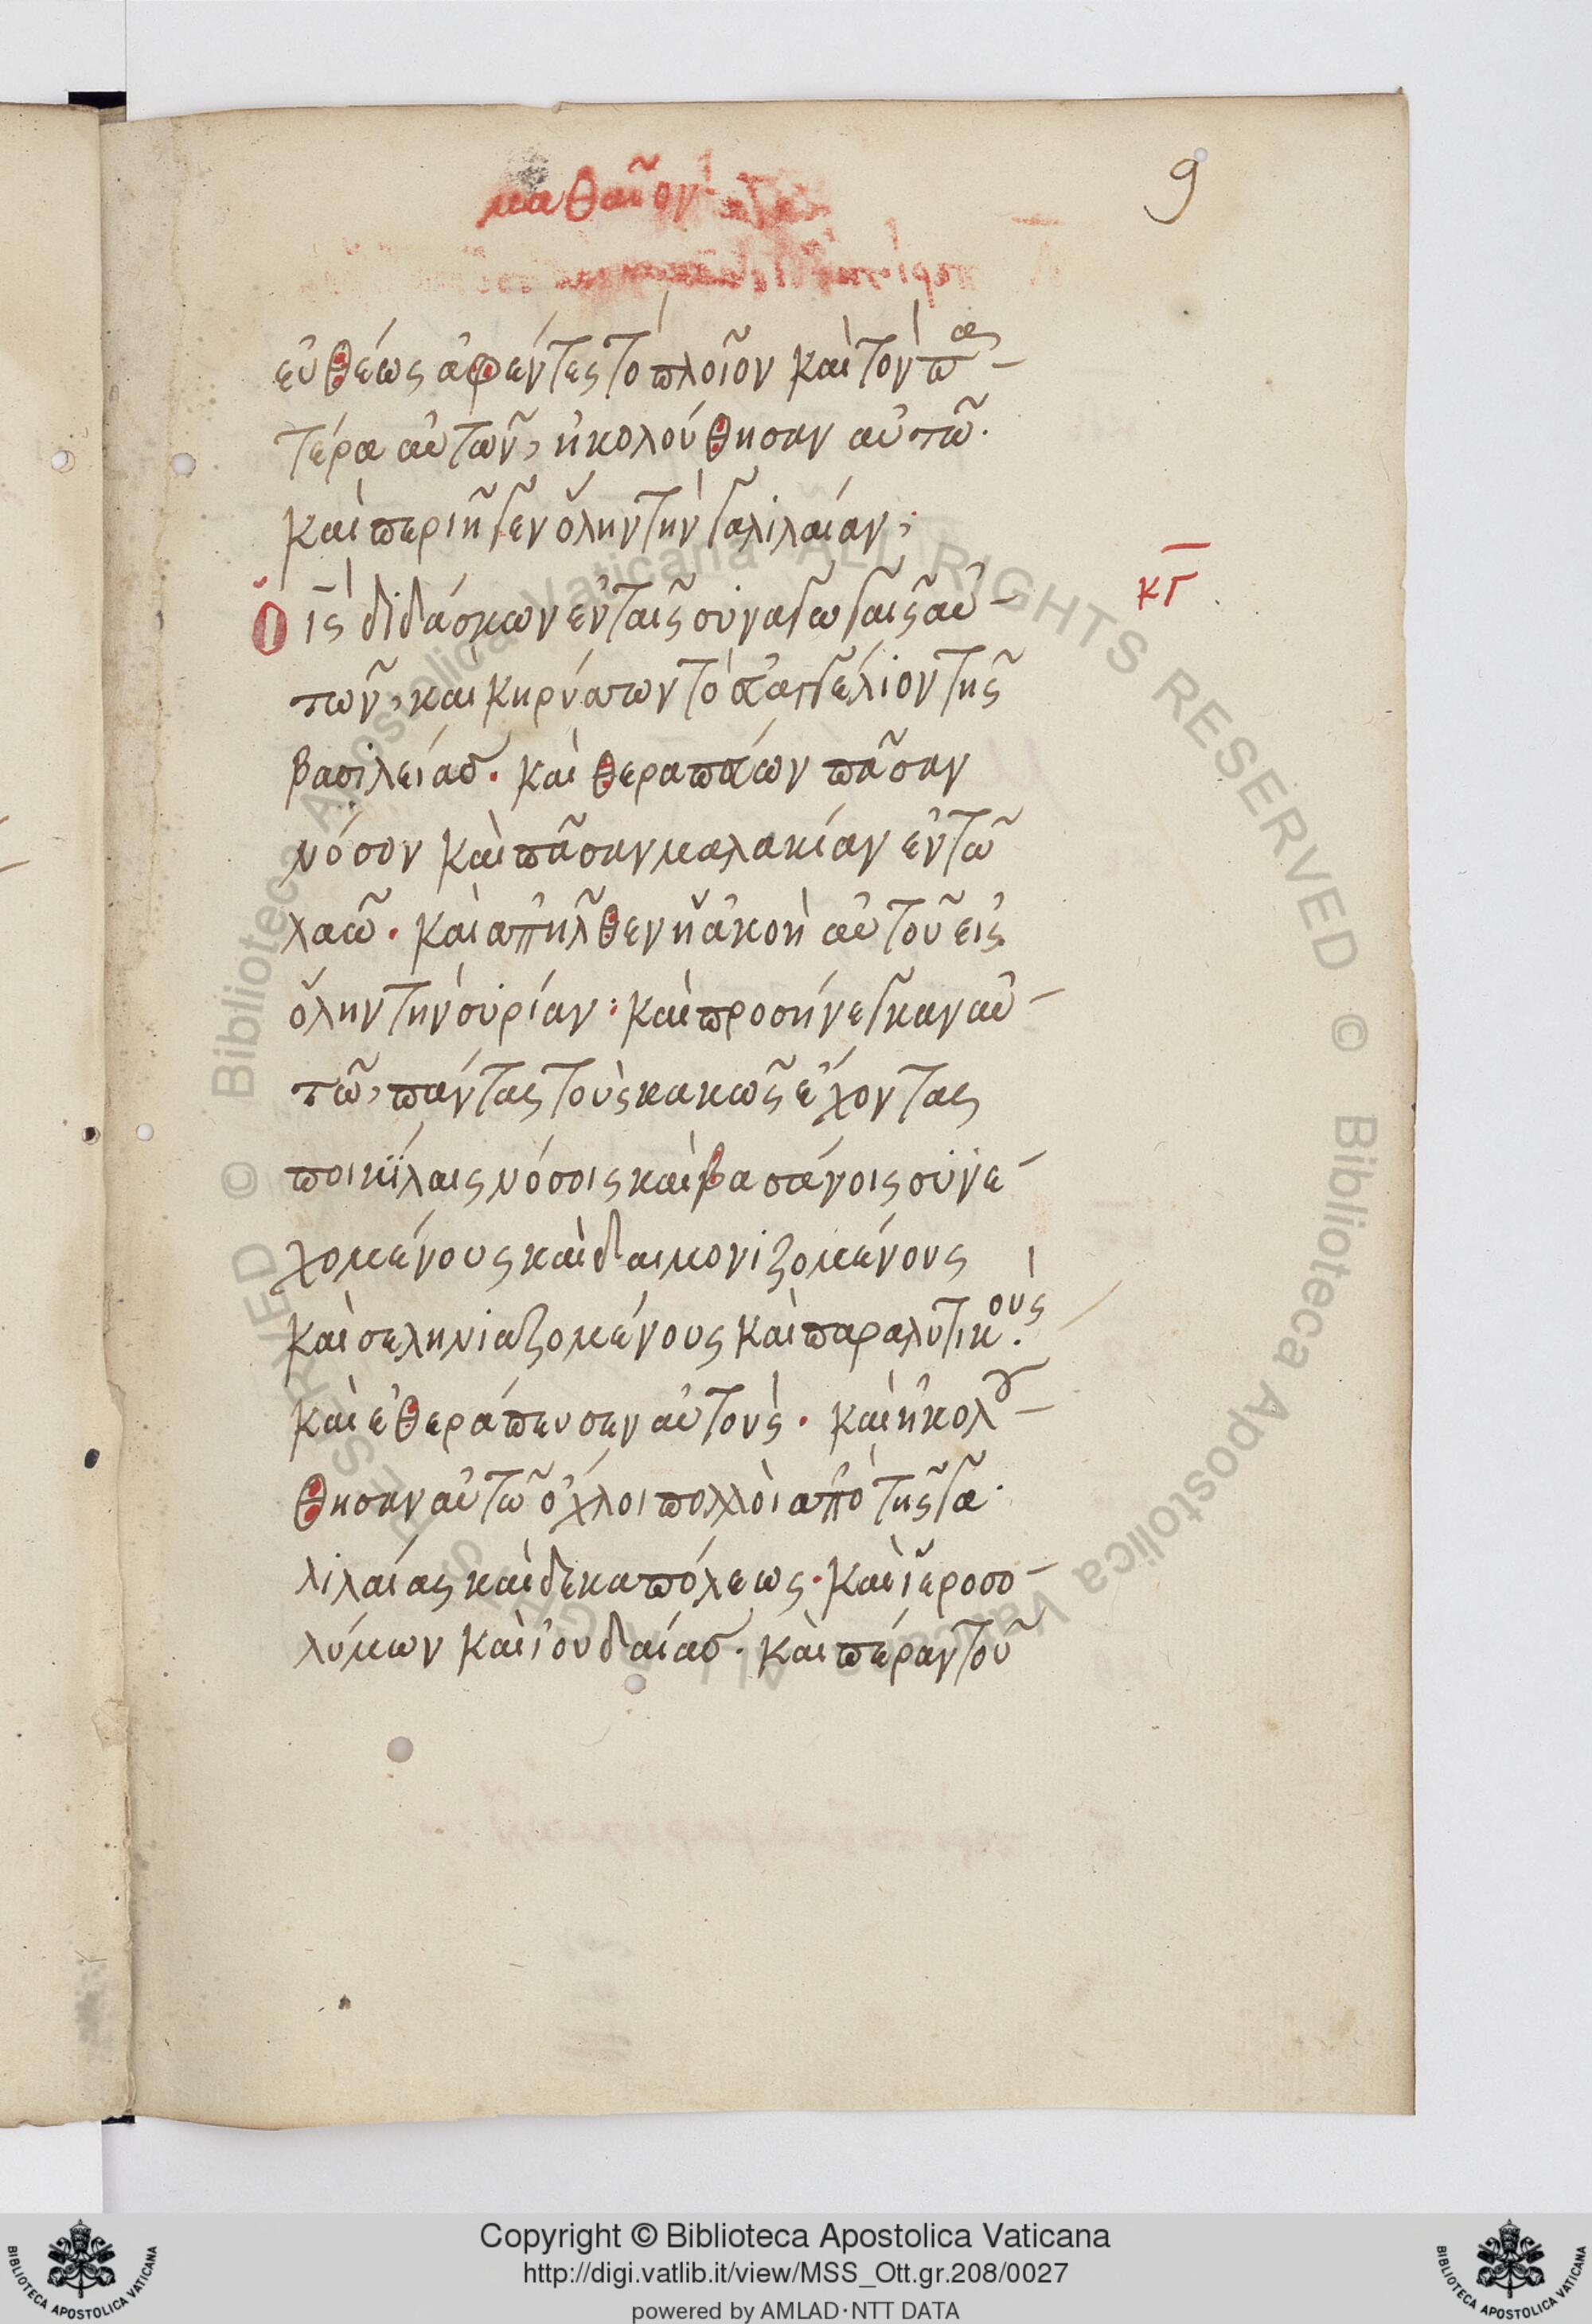 ματθαῖον
9
εὐθέως ἀφέντες τὸ πλοῖον καὶ τὸν πα-
τέρα αὐτῶν, ἠκολούθησαν αὐτῶ.
καὶ περιῆγεν ὅλην τὴν γαλιλαίαν,
ὁ ις διδάσκων ἐν ταῖς συναγωγαῖς αὐ-
κγ
τῶν, καὶ κηρύσσων τὸ εὐαγγέλιον τῆς
βασιλείας. καὶ θεραπεύων πᾶσαν
νόσον καὶ πᾶσαν μαλακίαν ἐν τῶ
λαῶ. καὶ ἀπῆλθεν ἡ ἀκοὴ αὐτοῦ εἰς
ὅλην τὴν συρίαν: καὶ προσήνεγκαν αὐ-
τῶ, πάντας τοὺς κακῶς ἔχοντας
ποικίλαις νόσοις καὶ βασάνοις συνε-
χομένους καὶ δαιμονιζομένους
καὶ σεληνιαζομένους καὶ παραλυτικούς.
καὶ ἐθεράπευσεν αὐτούς. καὶ ἠκολου-
θησαν αὐτῶ ὄχλοι πολλοὶ ἀπὸ τῆς γα-
λιλαίας καὶ δεκαπόλεως. καὶ ἱεροσο-
λύμων καὶ ἰουδαίας. καὶ πέραν τοῦ
Copyright © Biblioteca Apostolica Vaticana
http://digi.vatlib.it/view/MSS_Ott.gr.208/0027
powered by AMLAD·NTT DATA